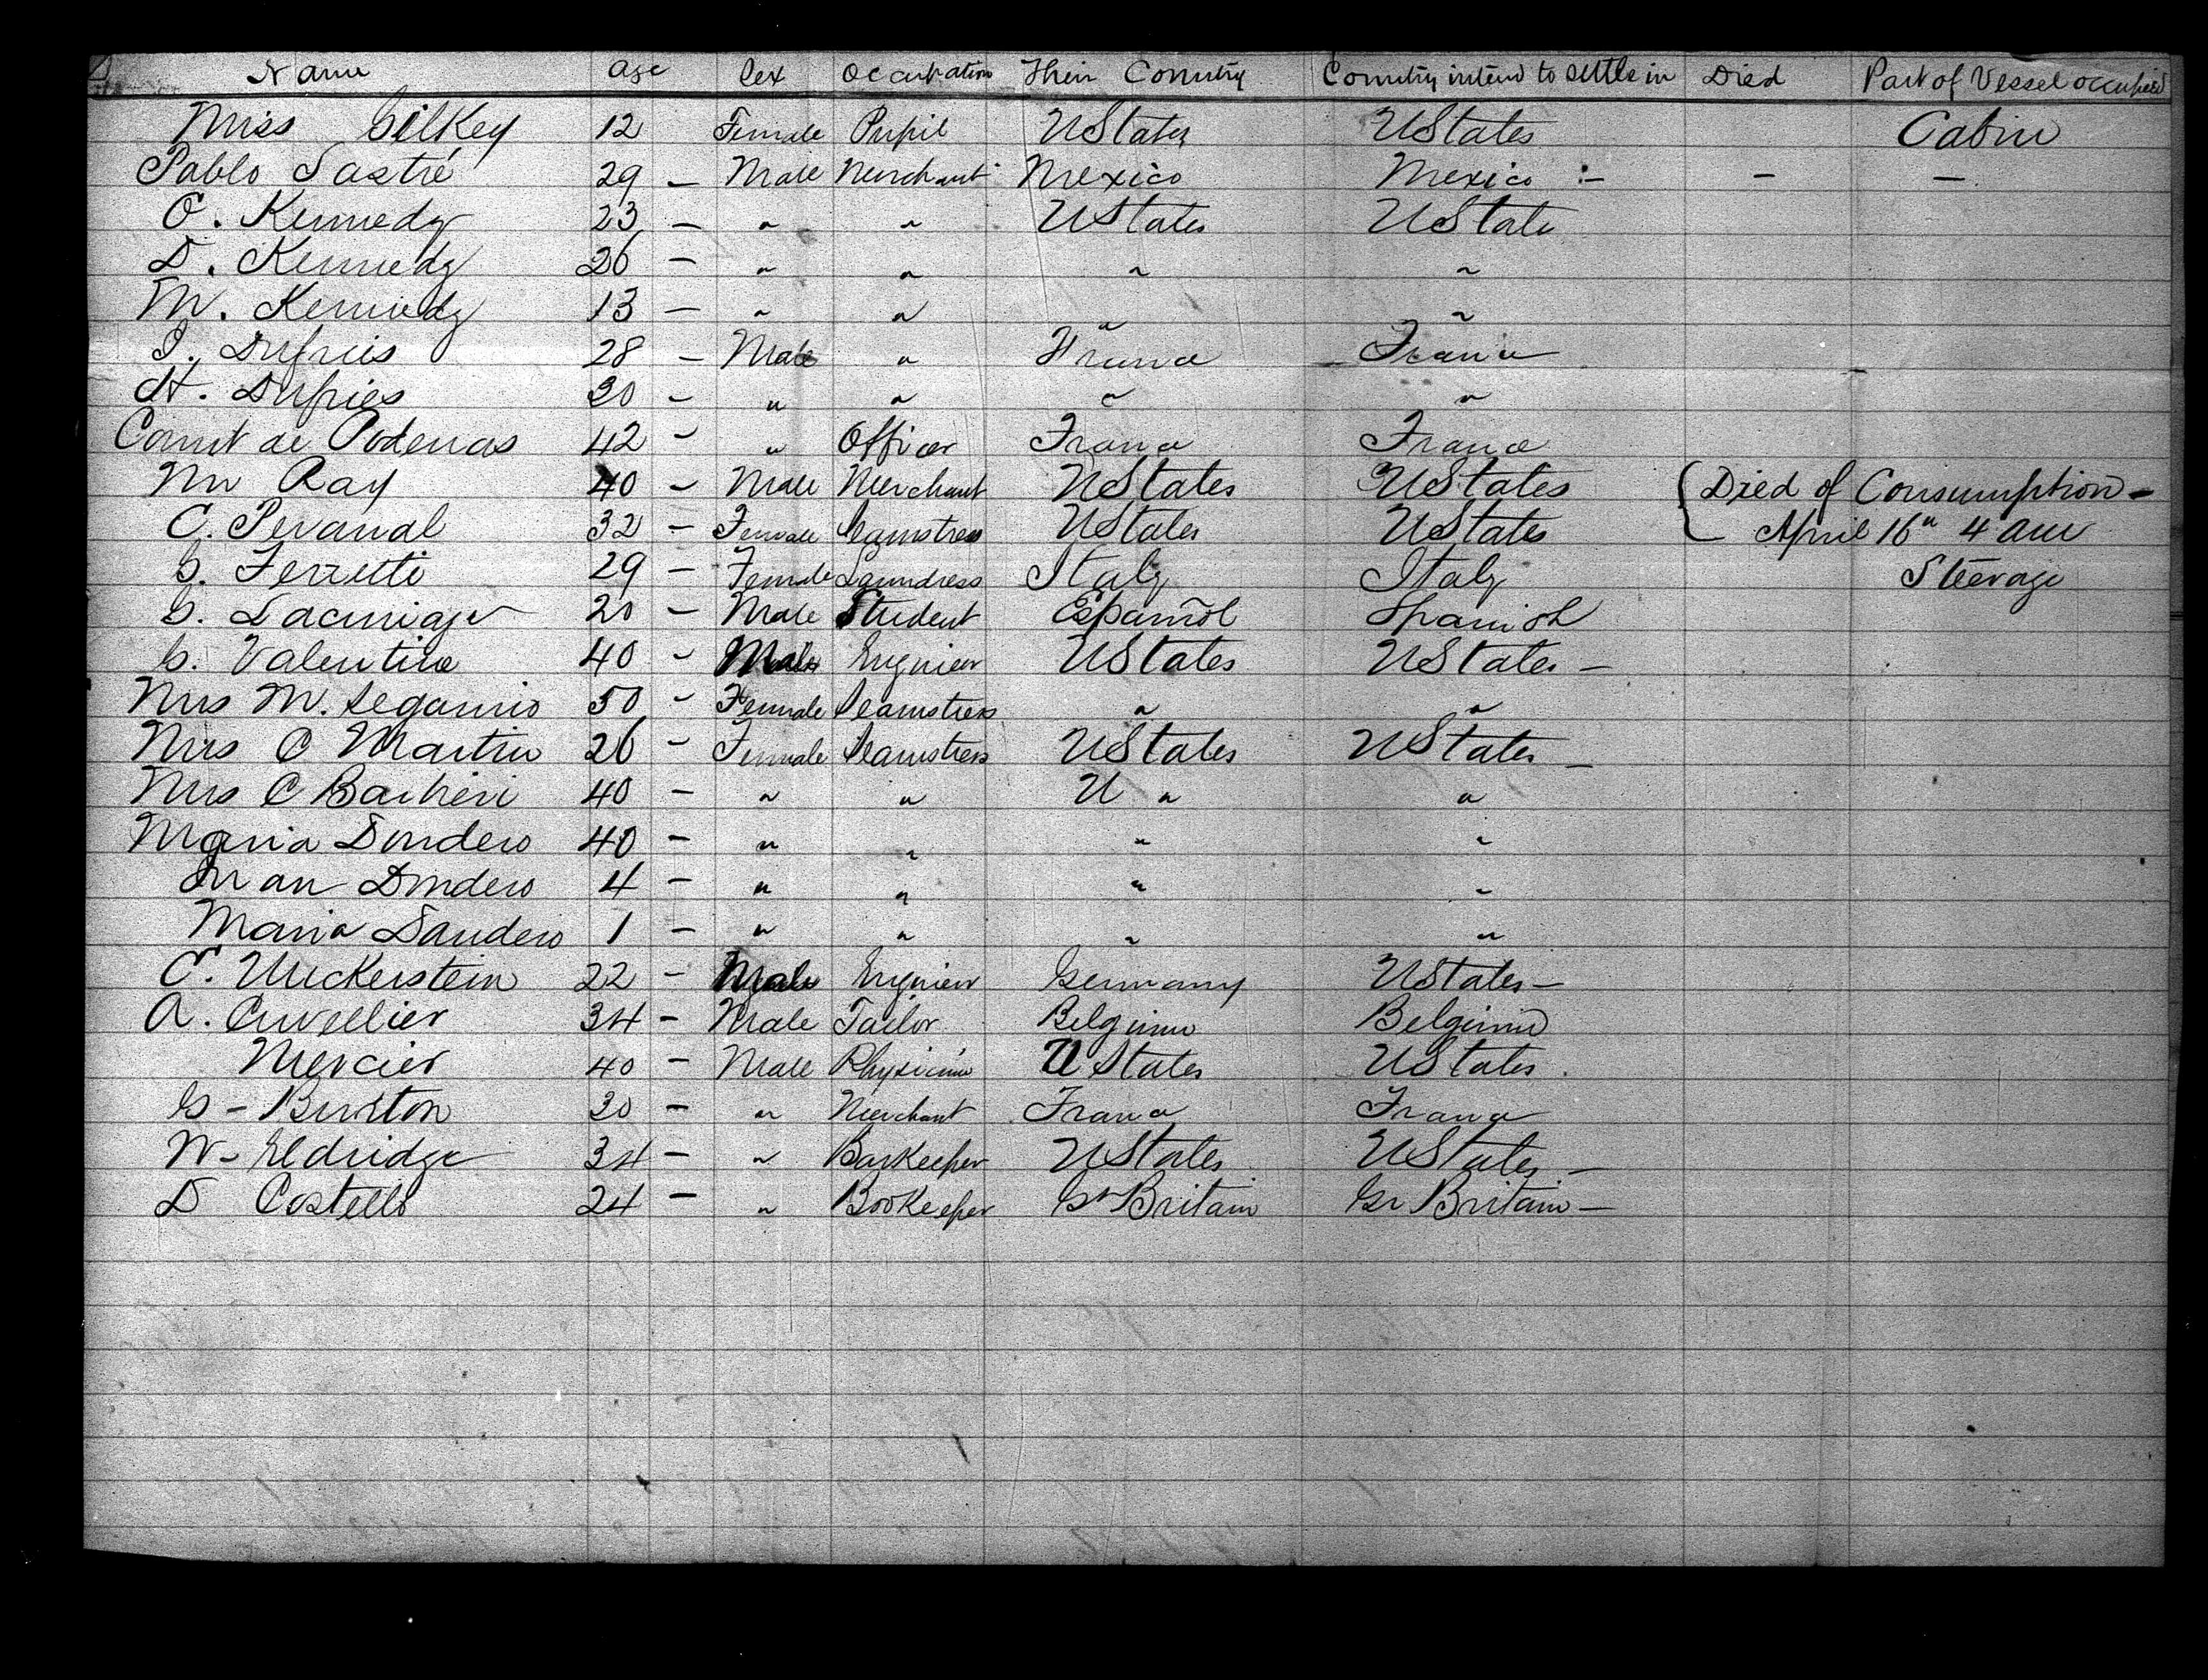 Name Age Sex Occupation Their Country Country intend to settle in Died Part of Vessel occupied
Miss Gilkey 12 Female Pupil UStates UStates Cabin
Pablo Sastré 29 — Male Merchant Mexico Mexico :— — —
C. Kennedy 23 — " " UStates UState
D. Kennedy 26 — " " " "
M. Kennedy 13 — " " " "
J. Dupuis 28 — Male " France France
H. Dupies 30 — " " " "
Count de Podenas 42 — " Officer France France
Mr Ray 40 — Male Merchant UStates UStates Died of Consumption —
C. Pevanal 32 — Female Seamstress UStates UStates April 16" 4 am
G. Ferretti 29 — Female Laundress Italy Italy Steerage
G. 20 — Male Student Español Spanish
G. Valentine 40 — Male Engnier UStates UStates —
Mrs M. Segarmio 50 — Female Seamstress " "
Mrs C Martin 26 — Female Seamstress UStates UStates —
Mrs C Barbieri 40 — " " U " "
Maria Dondero 40 — " " " "
Juan Dondero 4 — " " " "
Maria Dandero 1 — " " " "
C. Uickerstein 22 — Male Engnier Germany UStates —
A. Cuvellier 34 — Male Tailor Belgium Belgium
Mercier 40 — Male Physician UStates UStates.
G — Burton 30 — " Merchant France France
W — Eldridge 34 — " Barkeeper UStates UStates —
D Costello 24 — " Bookeeper Gr Britain Gr Britain —